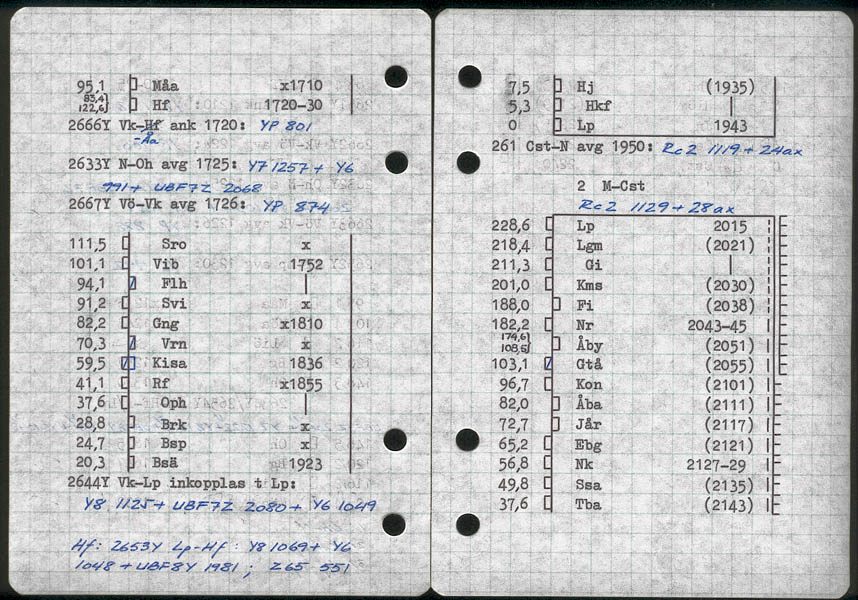 95,1 Måa x1710
83,4
122,6 Hf 1720-30
2666Y Vk-Hf ank 1720: YP 801
-Åa
2633Y N-Oh avg 1725: Y7 1257 + Y6
991 + UBF7Z 2068
2667Y Vö-Vk avg 1726: YP 874
111,5 Sro x
101,1 Vib 1752
94,1 Flh |
91,2 Svi x
82,2 Gng x1810
70,3 Vrn x
59,5 Kisa 1836
41,1 Rf x1855
37,6 Oph |
28,8 Brk x
24,7 Bsp x
20,3 Bsä 1923
2644Y Vk-Lp inkopplas t Lp:
Y8 1125 + UBF7Z 2080 + Y6 1049
Hf: 2653Y Lp-Hf: Y8 1069 + Y6
1048 + UBF8Y 1981; Z65 551
7,5 Hj (1935)
5,3 Hkf |
0 Lp 1943
261 Cst-N avg 1950: Rc2 1119 + 24ax
2 M-Cst
Rc2 1129 + 28ax
228,6 Lp 2015
218,4 Lgm (2021)
211,3 Gi |
201,0 Kms (2030)
188,0 Fi (2038)
182,2 Nr 2043-45
174,6
108,5 Åby (2051)
103,1 Gtå (2055)
96,7 Kon (2101)
82,0 Åba (2111)
72,7 Jår (2117)
65,2 Ebg (2121)
56,8 Nk 2127-29
49,8 Ssa (2135)
37,6 Tba (2143)